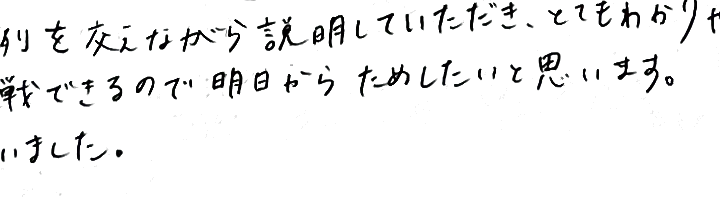 列を交えながら説明していただき、とてもわかりや
戦できるので明日からためしたいと思います。
いました。